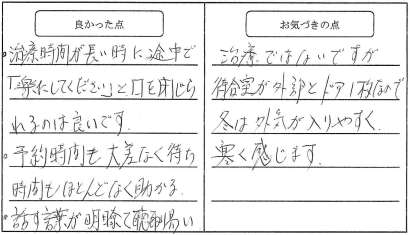 良かった点
・治療時間が長い時に途中で
「楽にしてください」と口を閉じら
れるのは良いです.
・予約時間も大差なく待ち
時間もほとんどなく助かる.
・話す言葉が明瞭で聴取し易い
お気づきの点
治療ではないですが
待合室が外部とドア1枚なので
冬は外気が入りやすく.
寒く感じます.